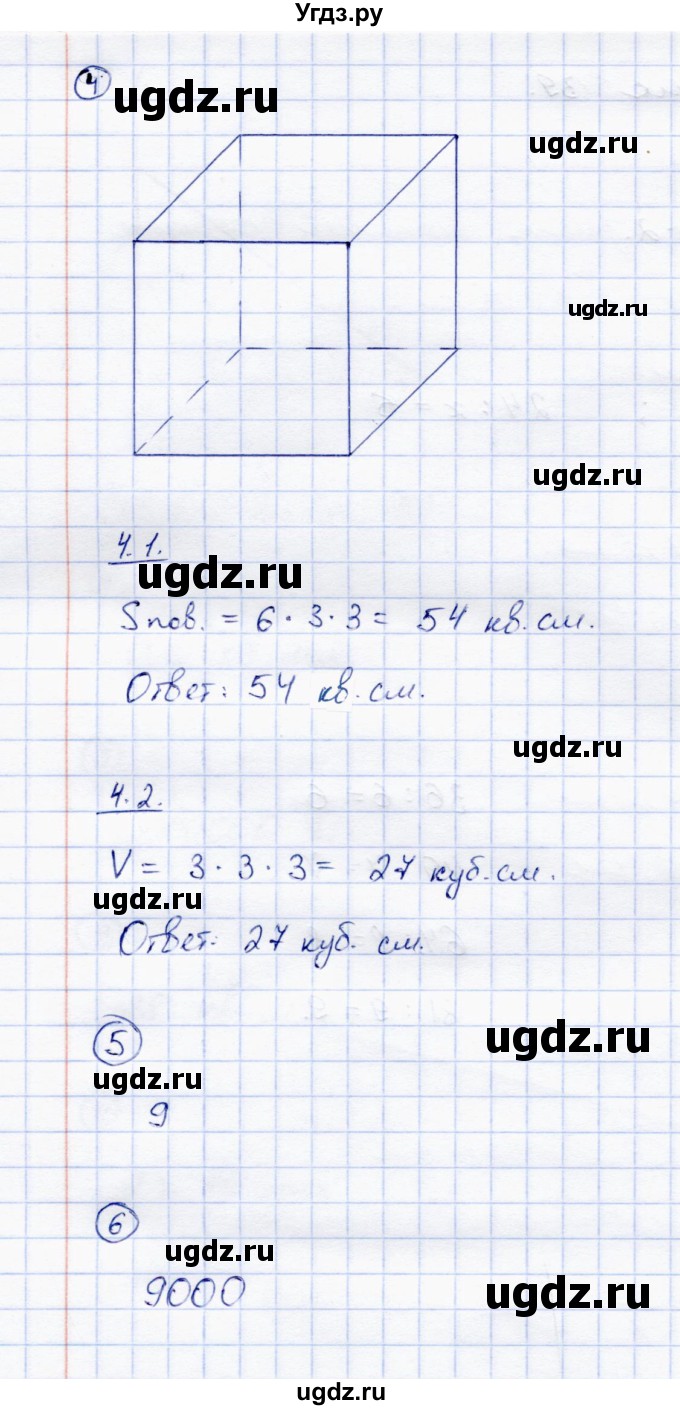 Угдз.ру
4
ugdz.ru
ugdz.ru
ugdz.ru
ugdz.ru
4.1.
ugdz.ru
Sпов. = 6 · 3 · 3 = 54 кв. см.
Ответ: 54 кв. см.
ugdz.ru
4.2.
V = 3 · 3 · 3 = 27 куб. см.
ugdz.ru
Ответ: 27 куб. см.
5
ugdz.ru
ugdz.ru
9
6
ugdz.ru
9000
ugdz.ru
ugdz.ru